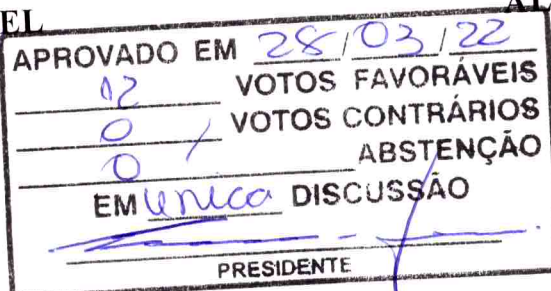 EL
APROVADO EM 28/03/22
12 VOTOS FAVORÁVEIS
0 VOTOS CONTRÁRIOS
0 ABSTENÇÃO
EM única DISCUSSÃO
PRESIDENTE